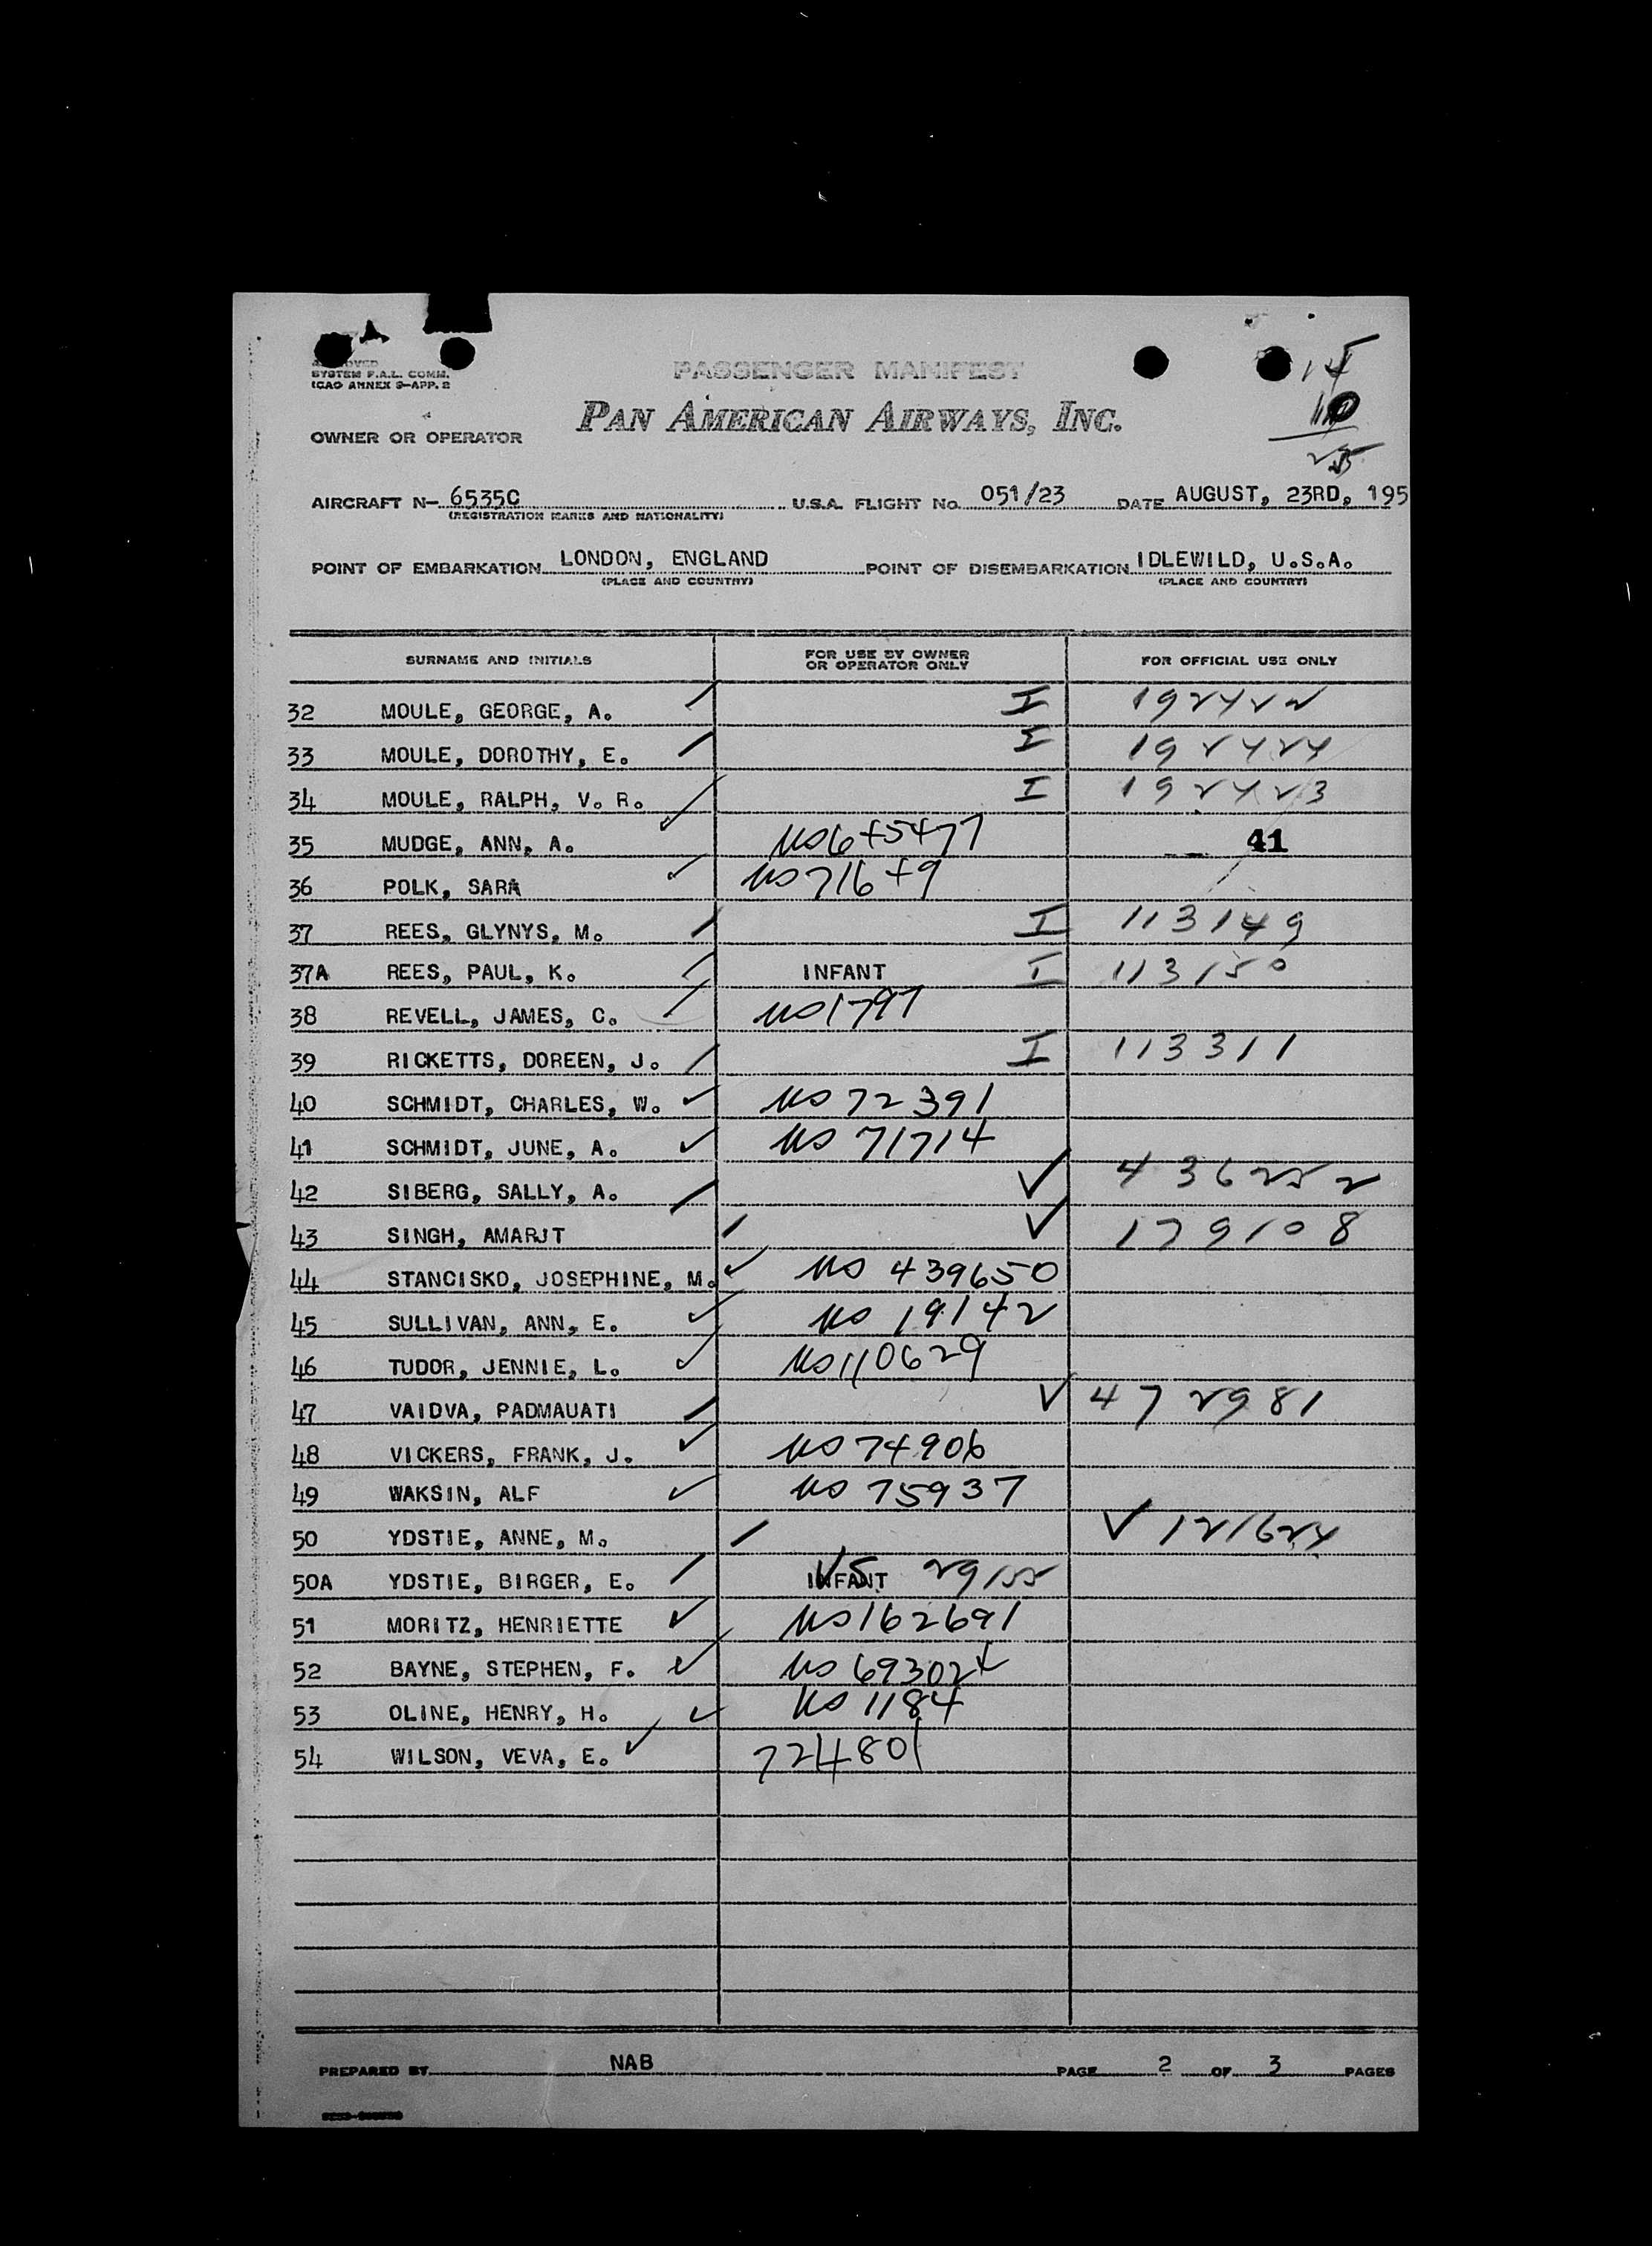 PASSENGER MANIFEST
SYSTEM F.A.L. COMM.
ICAO ANNEX 9-APP. 2
PAN AMERICAN AIRWAYS, INC.
OWNER OR OPERATOR
AIRCRAFT N- 6535C U.S.A. FLIGHT No. 051/23 DATE AUGUST, 23RD, 195
(REGISTRATION MARKS AND NATIONALITY)
POINT OF EMBARKATION LONDON, ENGLAND POINT OF DISEMBARKATION IDLEWILD, U.S.A.
(PLACE AND COUNTRY) (PLACE AND COUNTRY)
SURNAME AND INITIALS FOR USE BY OWNER OR OPERATOR ONLY FOR OFFICIAL USE ONLY
32 MOULE, GEORGE, A. I 192422
33 MOULE, DOROTHY, E. I 192424
34 MOULE, RALPH, V. R. I 192423
35 MUDGE, ANN, A. US 645477 41
36 POLK, SARA US 71649
37 REES, GLYNYS, M. I 113149
37A REES, PAUL, K. INFANT I 113150
38 REVELL, JAMES, C. US 1797
39 RICKETTS, DOREEN, J. I 113311
40 SCHMIDT, CHARLES, W. ✓ US 72391
41 SCHMIDT, JUNE, A. ✓ US 71714
42 SIBERG, SALLY, A. ✓ 436252
43 SINGH, AMARJT ✓ 179108
44 STANCISKO, JOSEPHINE, M. ✓ US 439650
45 SULLIVAN, ANN, E. ✓ US 19142
46 TUDOR, JENNIE, L. ✓ US 110629
47 VAIDVA, PADMAUATI ✓ 472981
48 VICKERS, FRANK, J. ✓ US 74906
49 WAKSIN, ALF ✓ US 75937
50 YDSTIE, ANNE, M. ✓ 121624
50A YDSTIE, BIRGER, E. INFANT US 29155
51 MORITZ, HENRIETTE ✓ US 162691
52 BAYNE, STEPHEN, F. ✓ US 693024
53 OLINE, HENRY, H. ✓ US 1184
54 WILSON, VEVA, E. ✓ 724801
PREPARED BY NAB PAGE 2 OF 3 PAGES